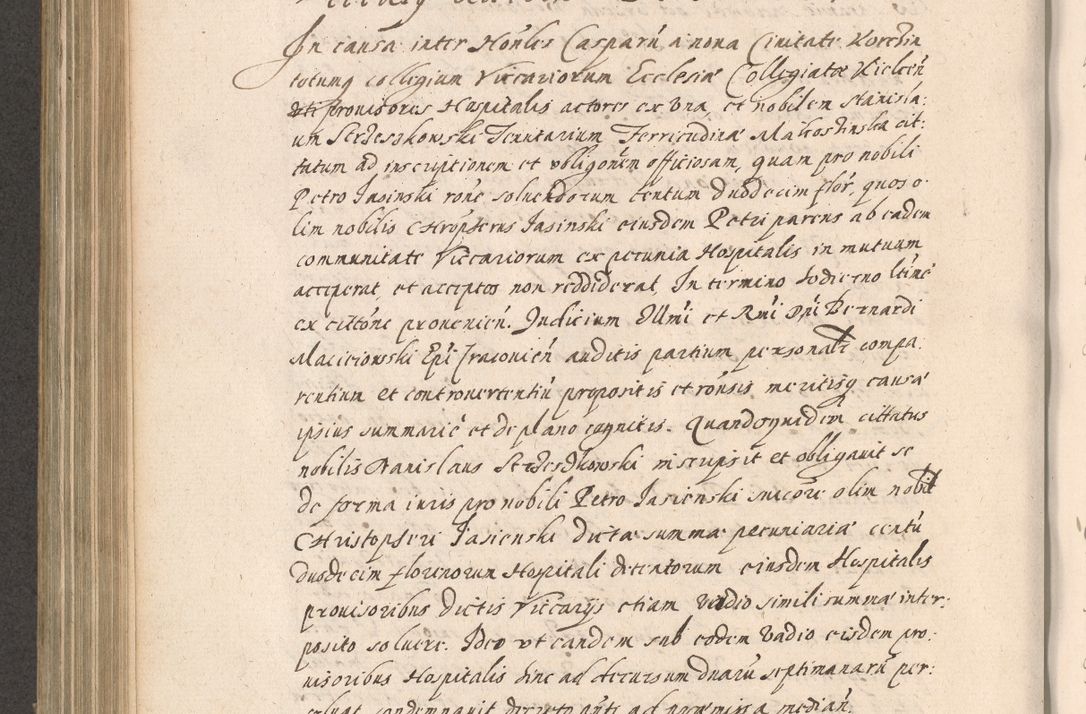 In causa inter Honles Casparū a nona Ciuitate Korchin
totumq collegium Viccariorum Ecclesiæ Collegiatæ Kielceñ
uti prouisores Hospitalis actores ex una, et nobilem Stanisla:
um Strzeszkowski Tenutarium Terricudina Makoszinska cit:
tatum ad inscriptionem et obligonem officiosam, quam pro nobili
Petro Jasinski rone soluendorum centum duodecim flor, quos o
lim nobilis Chrophorus Jasinski eiusdem Petri parens ab eadem
communitate Viccariorum ex pecunia Hospitalis in mutuum
acceperat, et acceptos non reddiderat. In termino hodierno ltime
ex cittone proueniē. Judicium Illmi et Rmi Dni Bernardi
Macieiowski Epi Cracouień auditis partium personalr compa
rentium et controuertentiū propositis et ronsis meritisq causæ
ipsius summarie et de plano cognitis. Quandoquidem cittatus
nobilis Stanislaus Strzeszkowski inscripsit et obligauit se
de forma iuris pro nobili Petro Jasienski succore olim nobil
Christopheri Jasienski dictæ summæ pecuniariæ centū
duodecim florenorum Hospitali detentorum eiusdem Hospitalis
prouisoribus dictis Viccarijs etiam vadio simili summæ inter:
posito soluere. Ideo vt eandem sub eodem vadio eisdem pro:
uisoribus Hospitalis hinc ad decursum duarū septimanarū per:
soluat condemnauit decreto pnti ad præmissa mediañ.